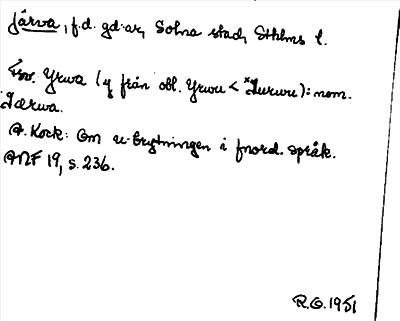 Järva, f.d. gd:ar, Solna stad, Sthlms l.
Fsv. Yrwa (y från obl. Yrwu < *Jurwu): nom.
Jærwa.
A. Kock: Om u-brytningen i fnord. språk.
ANF 19, s. 236.
R.O. 1951